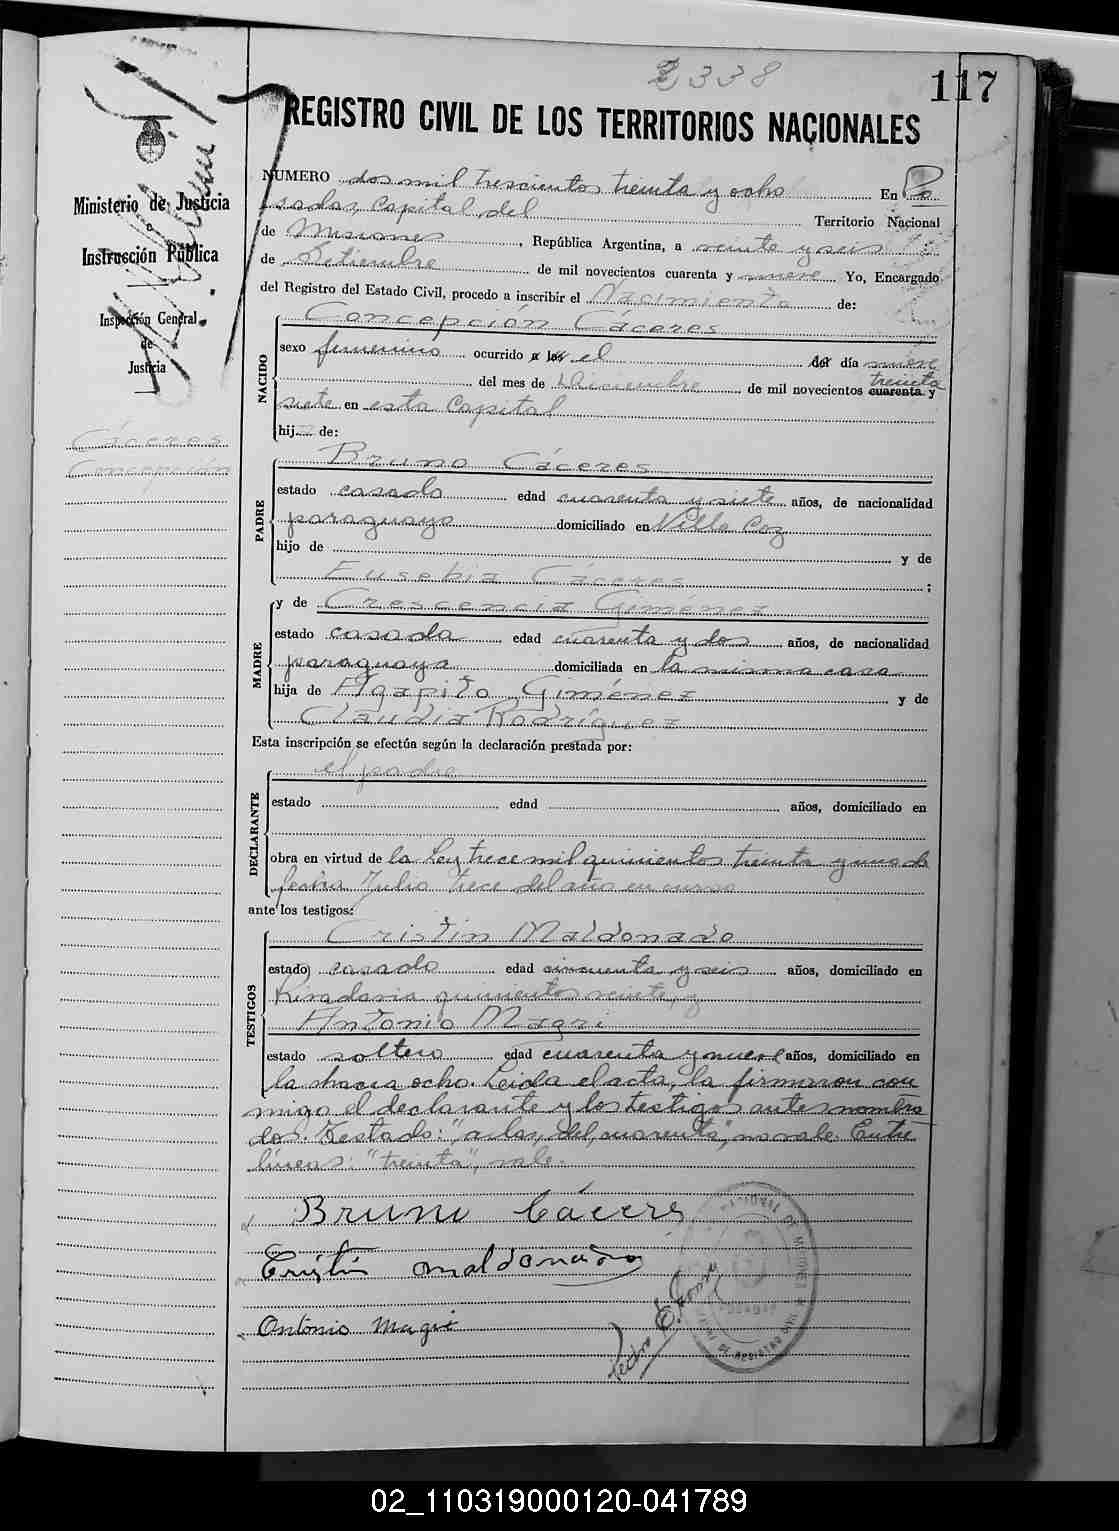 2338
117
REGISTRO CIVIL DE LOS TERRITORIOS NACIONALES
Ministerio de Justicia
e
Instrucción Pública
Inspección General
de
Justicia
Cáceres
Concepción
NUMERO dos mil trescientos treinta y ocho En Po
sadas, Capital del Territorio Nacional
de Misiones, República Argentina, a veinte y seis
de Setiembre de mil novecientos cuarenta y nueve Yo, Encargado
del Registro del Estado Civil, procedo a inscribir el Nacimiento de:
NACIDO
Concepción Cáceres
sexo femenino ocurrido a las el del día nueve
del mes de Diciembre de mil novecientos cuarenta y treinta
siete en esta Capital
hij de:
PADRE
Bruno Cáceres
estado casado edad cuarenta y siete años, de nacionalidad
paraguayo domiciliado en Villa Coz
hijo de y de
Eusebia Cáceres ;
MADRE
y de Crescencia Giménez
estado casada edad cuarenta y dos años, de nacionalidad
paraguaya domiciliada en la misma casa
hija de Agapito Giménez y de
Claudia Rodríguez
Esta inscripción se efectúa según la declaración prestada por:
DECLARANTE
el padre
estado edad años, domiciliado en
obra en virtud de la Ley trece mil quinientos treinta y uno de
fecha Julio trece del año en curso
ante los testigos:
TESTIGOS
Cristin Maldonado
estado casado edad cincuenta y seis años, domiciliado en
Rivadavia quinientos veinte, y
Antonio Magri
estado soltero edad cuarenta y nueve años, domiciliado en
la chacra ocho. Leida el acta, la firmaron con
migo el declarante y los testigos antes nombra
dos. Testado: "a las, del, cuarenta", no vale. Entre
líneas: "treinta", vale.
Bruno Cáceres
Cristin Maldonado
Antonio Magri
Pedro E.
02_110319000120-041789